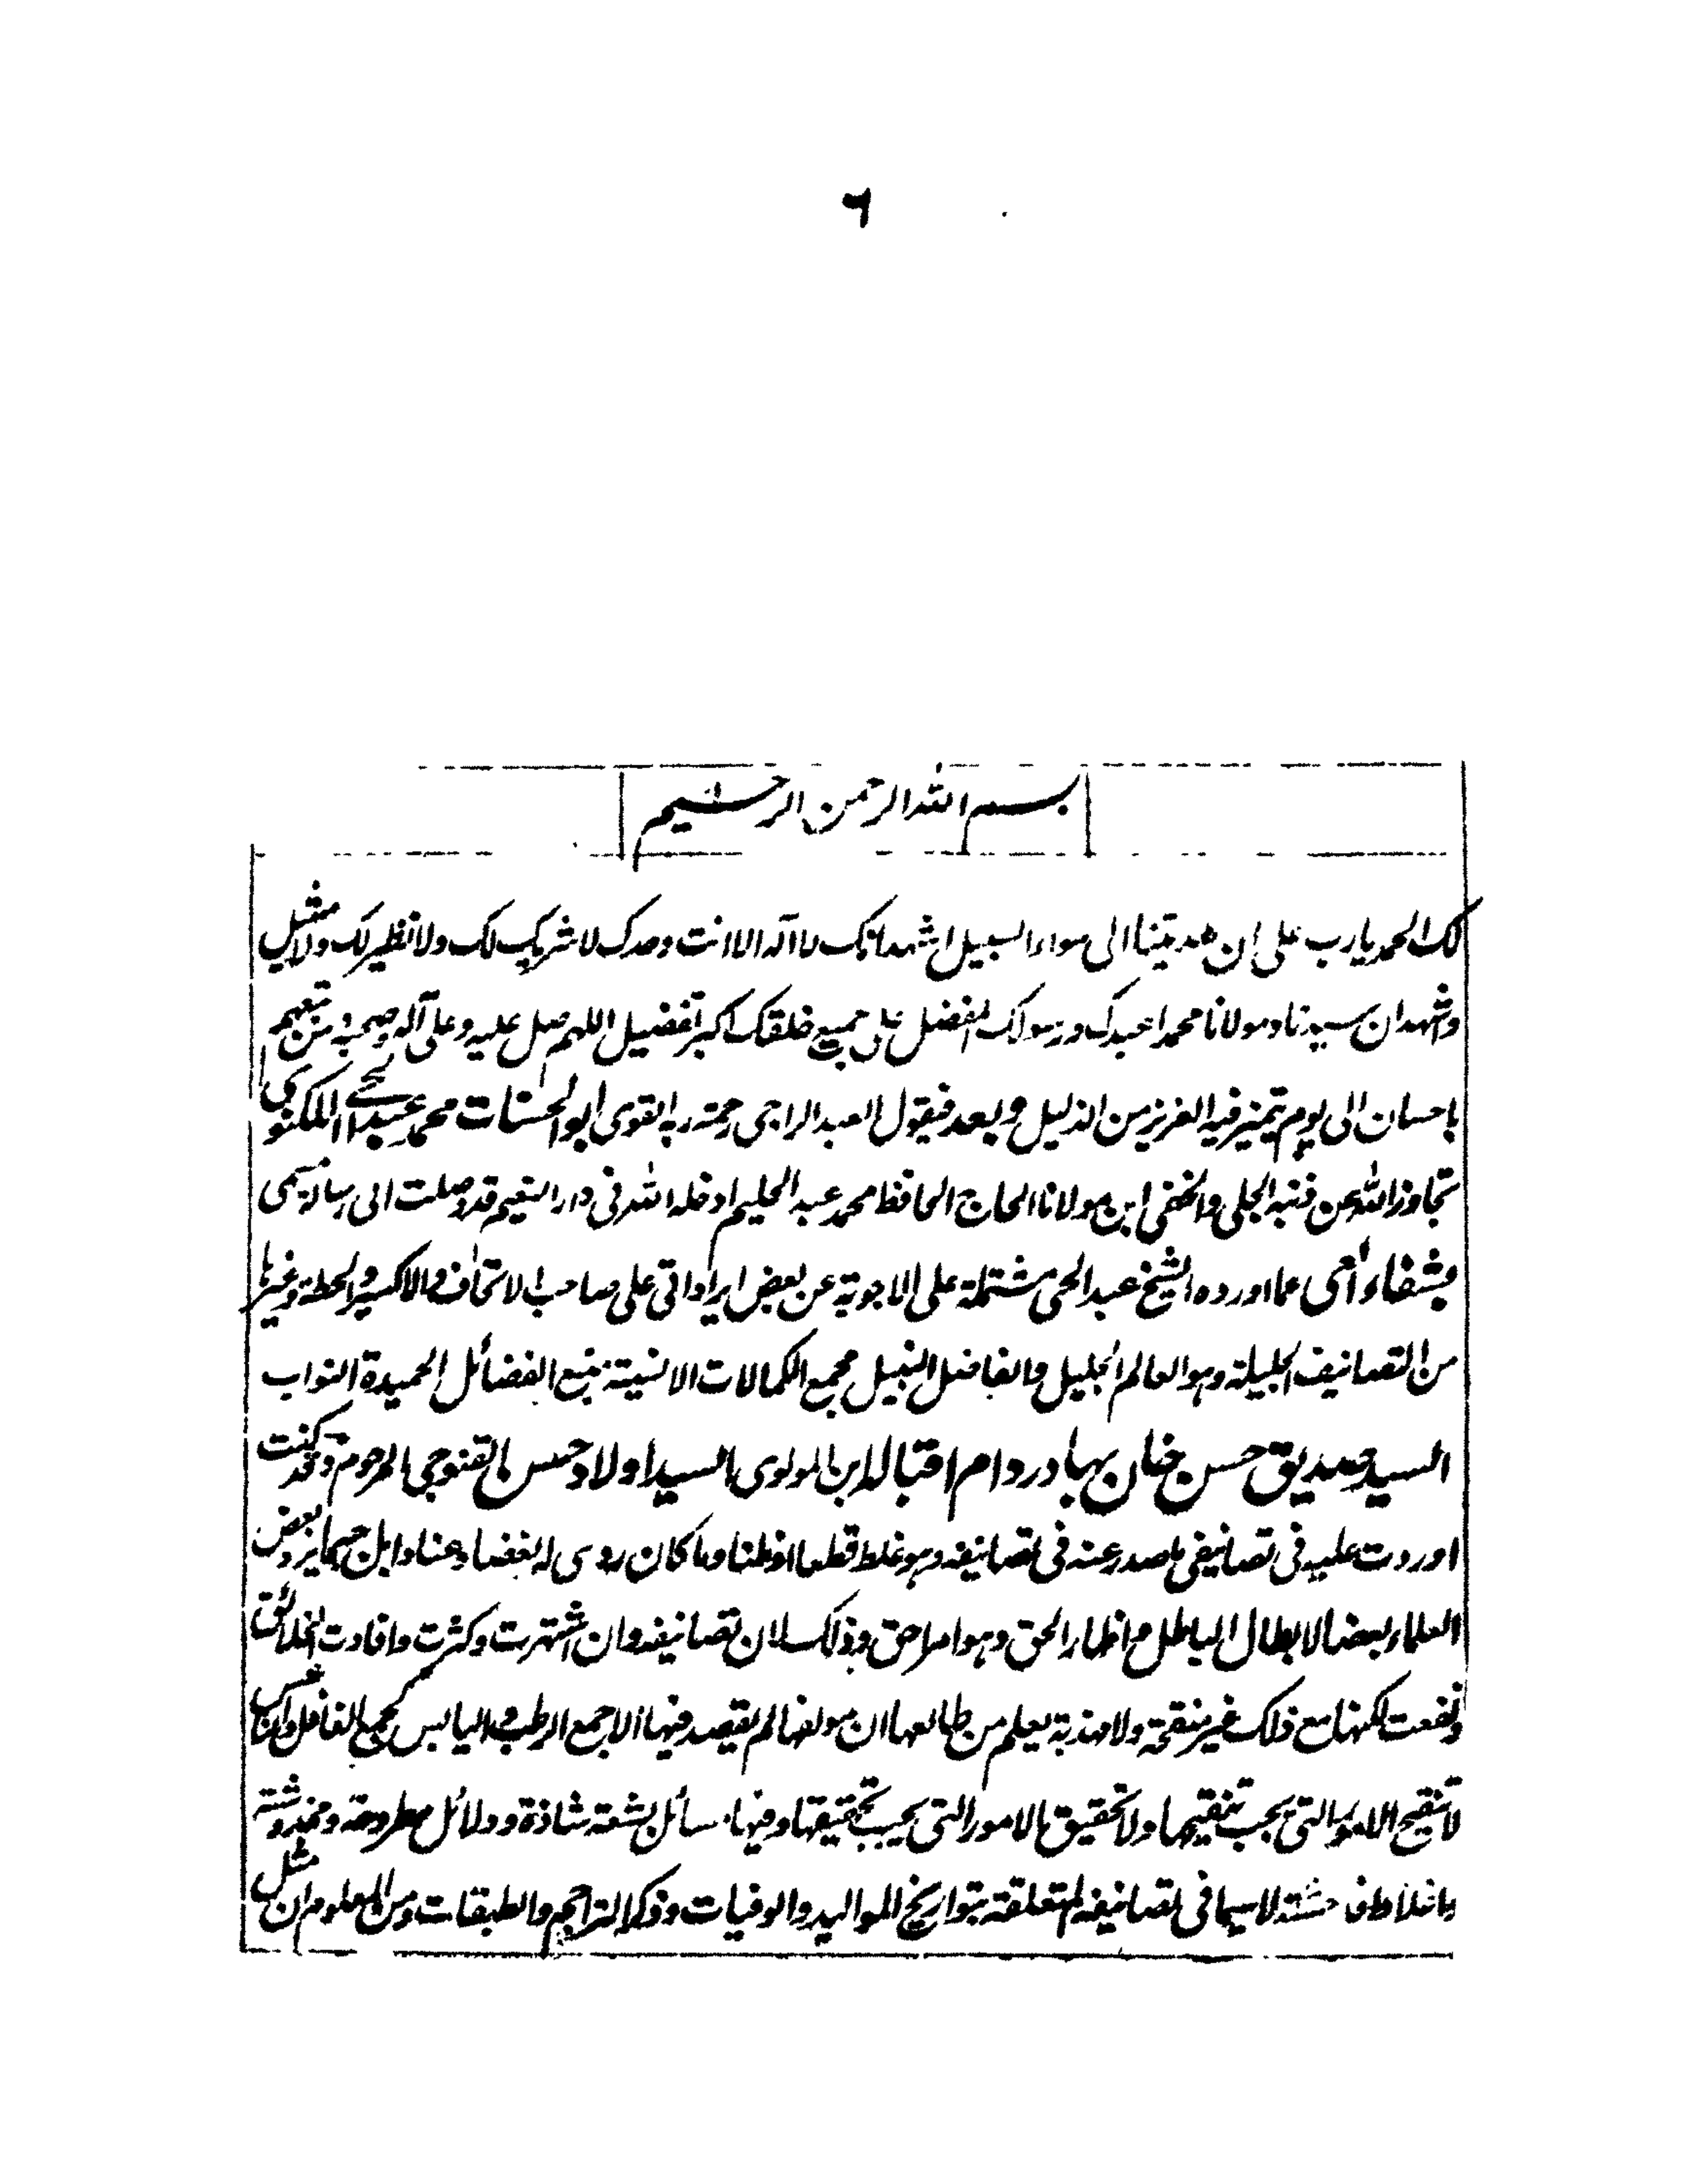 ٦
بسم الله الرحمن الرحيم
لك الحمد يا رب على ان هديتنا الى سواء السبيل اشهد انك لا اله الا انت وحدك لا شريك لك ولا نظير لك ولا مثيل
واشهد ان سيدنا ومولانا محمدا عبدك ورسولك المفضل على جميع خلقك اكبر تفضيل اللهم صل عليه وعلى آله وصحبه ومن تبعهم
باحسان الى يوم تميز فيه العزيز من الذليل وبعد فيقول العبد الراجى رحمة ربه القوى ابو الحسنات محمد عبد الحى اللكنوى
تجاوز الله عن ذنبه الجلى والخفى ابن مولانا الحاج الحافظ محمد عبد الحليم ادخله الله فى دار النعيم قد وصلت الى رسالة تسمى
بشفاء العى عما اورده الشيخ عبد الحى مشتملة على الاجوبة عن بعض ايراداتى على صاحب الاتحاف والاكسير والحطة وغيرها
من التصانيف الجليلة وهو العالم الجليل والفاضل النبيل مجمع الكمالات الانسية منبع الفضائل الحميدة النواب
السيد صديق حسن خان بهادر دام اقباله ابن المولوى السيد اولاد حسن القنوجى المرحوم وقد كنت
اوردت عليه فى تصانيفى ما صدر عنه فى تصانيفه وهو غلط قطعا او ظنا وما كان ردى له بغضا وعنادا بل حسبما يرد بعض
العلماء بعضا لابطال الباطل واظهار الحق وهو امر احق وذلك لان تصانيفه وان اشتهرت وكثرت وافادت الخلائق
ونفعت لكنها مع ذلك غير منقحة ولا مهذبة يعلم من طالعها ان مولفها لم يقصد فيها الا جمع الرطب واليابس كجمع الغافل والناعس
لا تنقيح الامور التى يجب تنقيحها ولا تحقيق الامور التى يجب تحقيقها وفيها مسائل بشعة شاذة ودلائل مطروحة ومخدوشة
واغلاط فاحشة لا سيما فى تصانيفه المتعلقة بتواريخ المواليد والوفيات وذكر التراجم والطبقات ومن المعلوم ان مثل